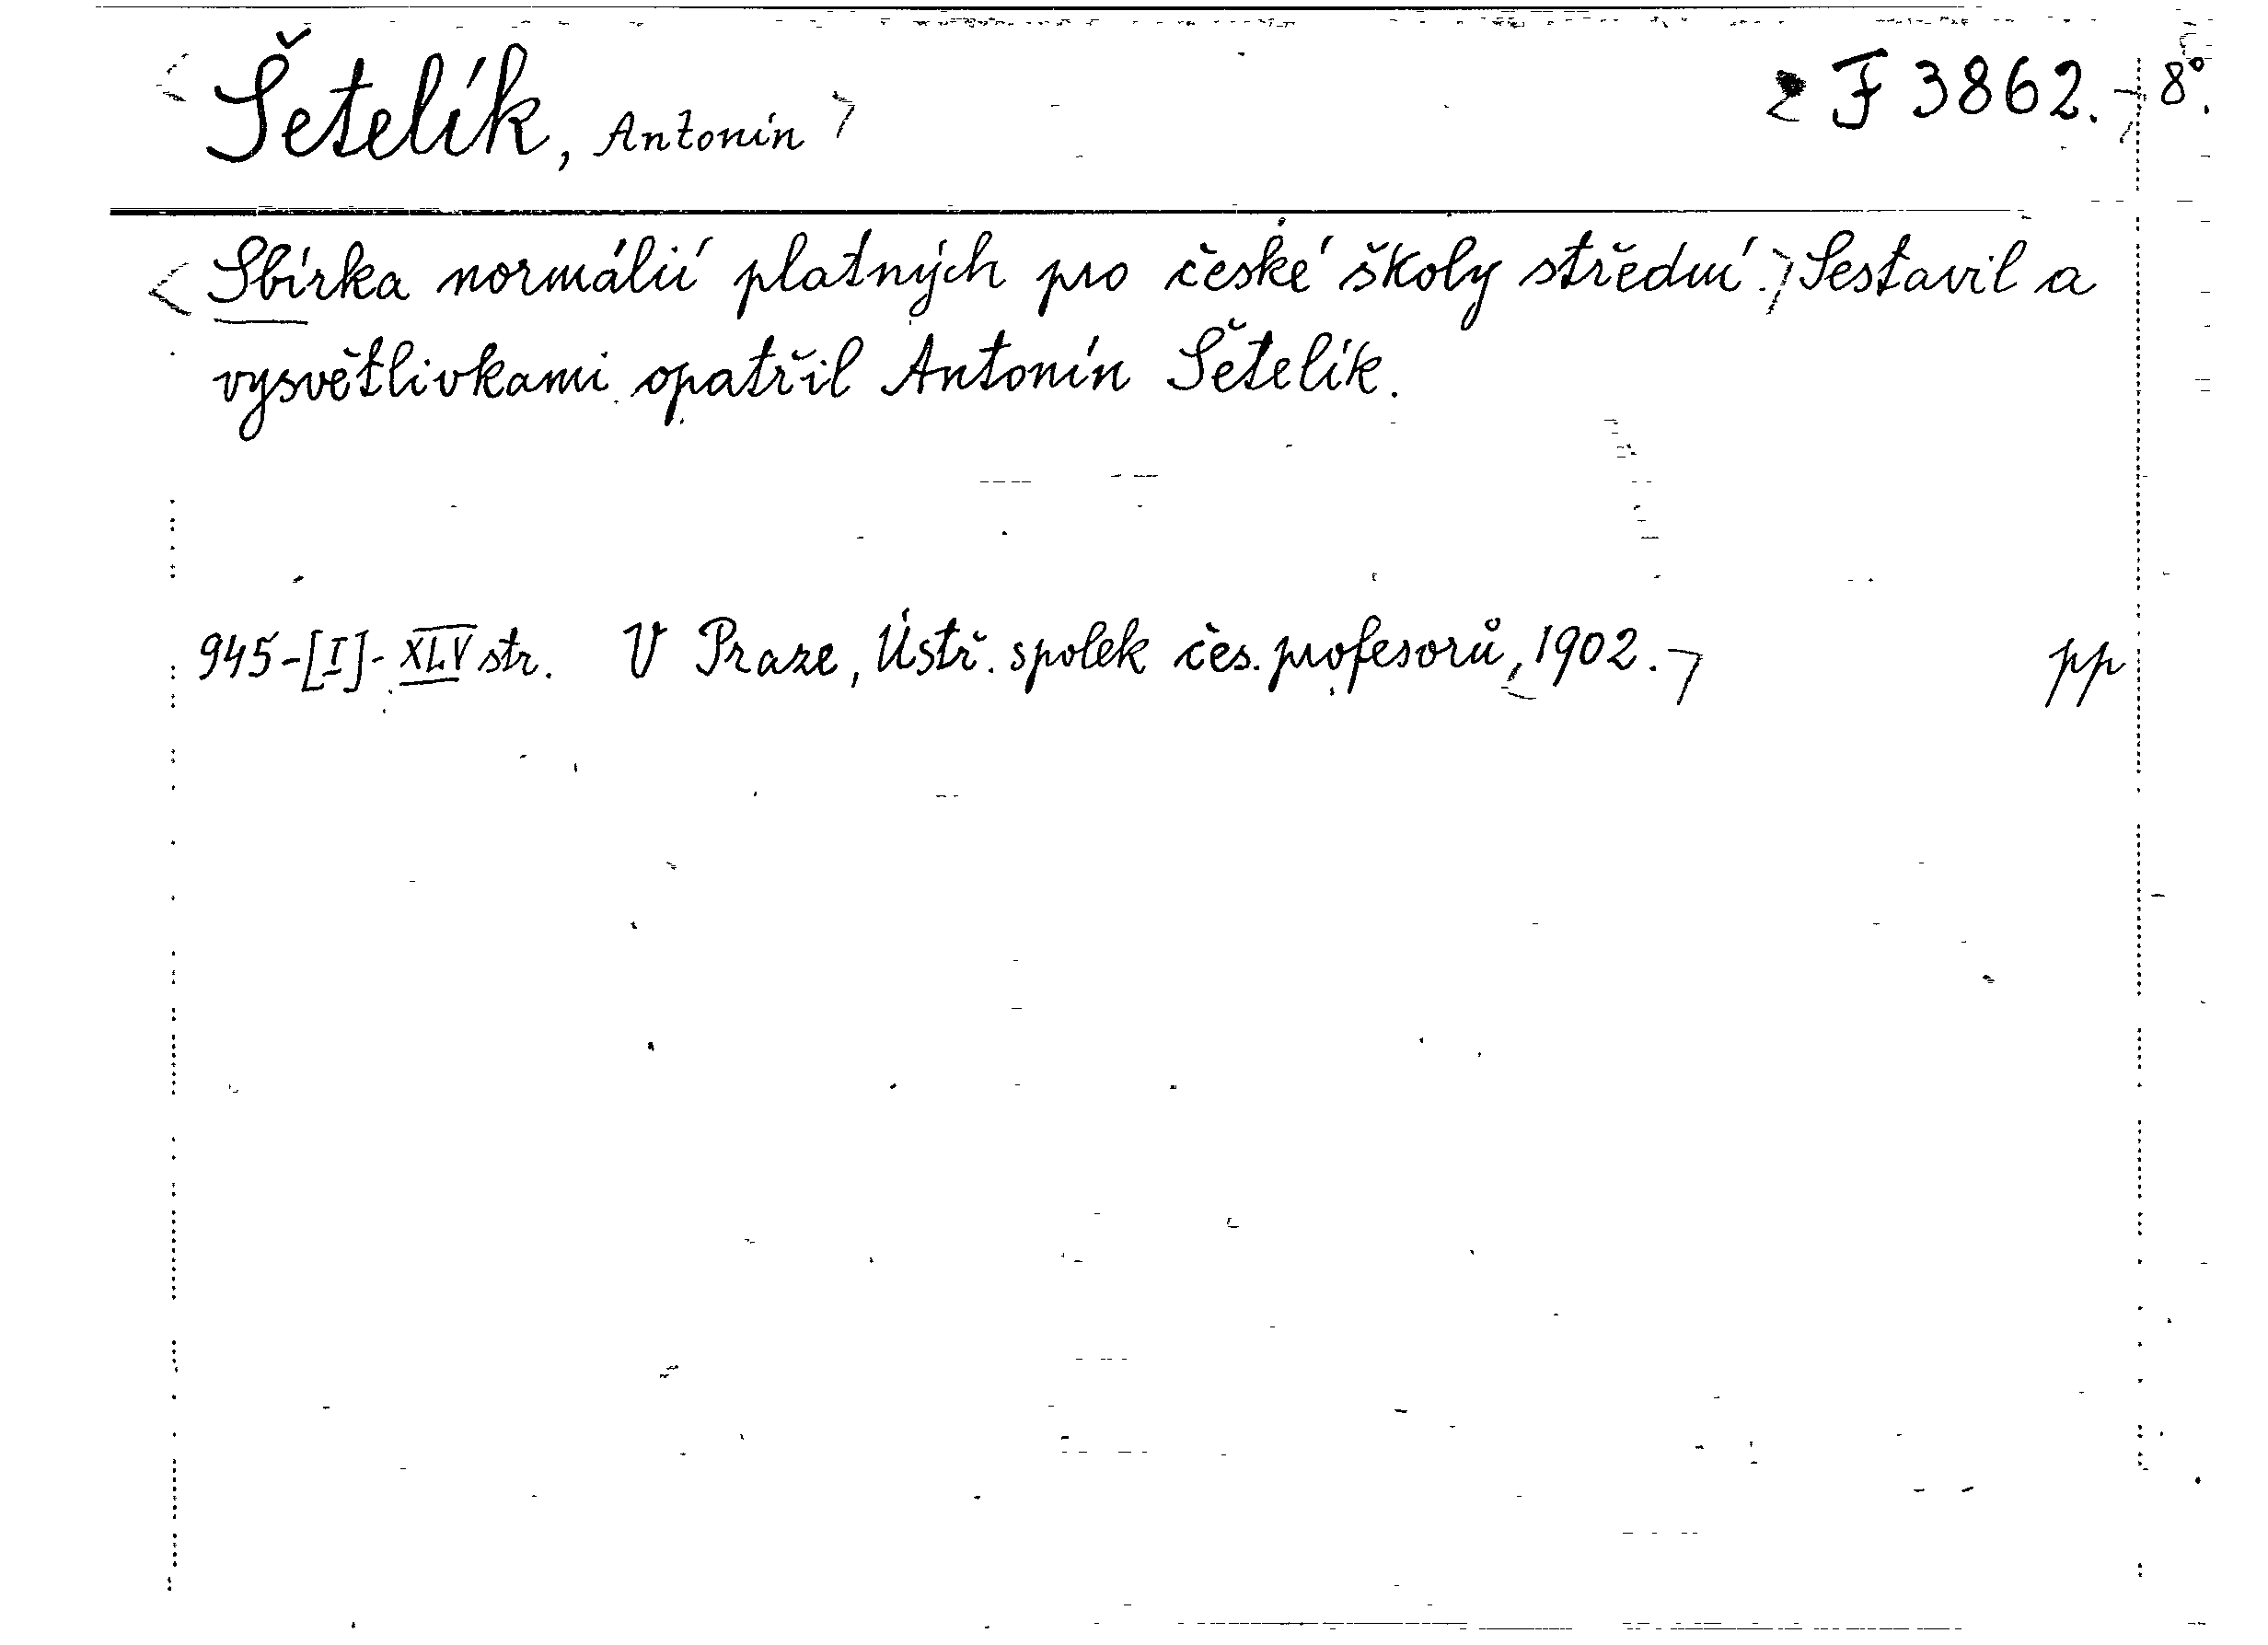 Šetelík, Antonín F 3862. 8°.
Sbírka normálií platných pro české školy střední. Sestavil a
vysvětlivkami opatřil Antonín Šetelík.
945-[I]-XLV str. V Praze, Ústř. spolek čes. profesorů, 1902. pp